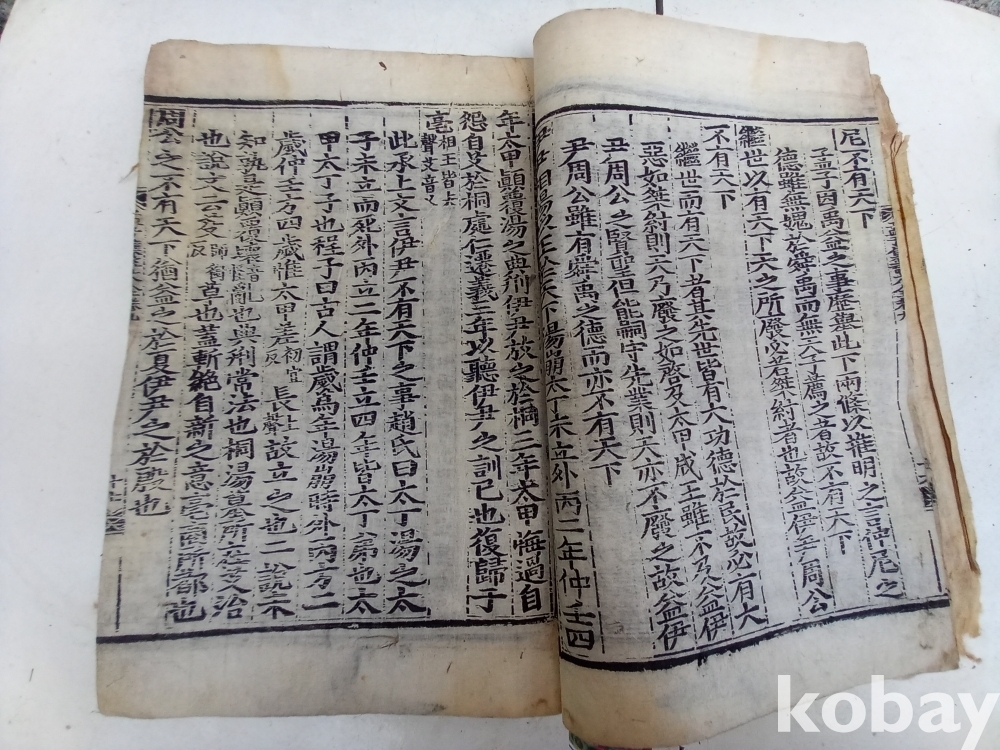 尼不有天下
孟子因禹益之事歷擧此下兩條以推明之言仲尼之
德雖無愧於舜禹而無天子薦之者故不有天下
繼世以有天下天之所廢必若桀紂者也故益伊尹周公
不有天下
繼世而有天下者其先世皆有大功德於民故必有大
惡如桀紂則天乃廢之如啓及太甲成王雖不及益伊
尹周公之賢聖但能嗣守先業則天亦不廢之故益伊
尹周公雖有舜禹之德而亦不有天下
伊尹相湯以王於天下湯崩太丁未立外丙二年仲壬四
年太甲顚覆湯之典刑伊尹放之於桐三年太甲悔過自
怨自艾於桐處仁遷義三年以聽伊尹之訓己也復歸于
亳 相王皆去聲艾音乂
此承上文言伊尹不有天下之事趙氏曰太丁湯之太
子未立而死外丙立二年仲壬立四年皆太丁弟也太
甲太丁子也程子曰古人謂歲爲年湯崩時外丙方二
歲仲壬方四歲惟太甲差 初宜反 長 上聲 故立之也二說未
知孰是顚覆壞亂也典刑常法也桐湯墓所在艾治
也說文云芟 草也蓋斬絶自新之意亳商所都也
周公之不有天下猶益之於夏伊尹之於殷也
kobay